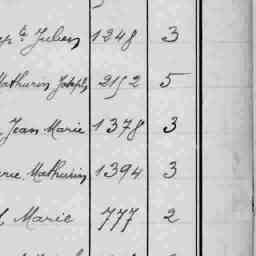 Julien 1248 3
Mathurin Joseph 2152 5
Jean Marie 1378 3
Mathurin 1394 3
Marie 777 2